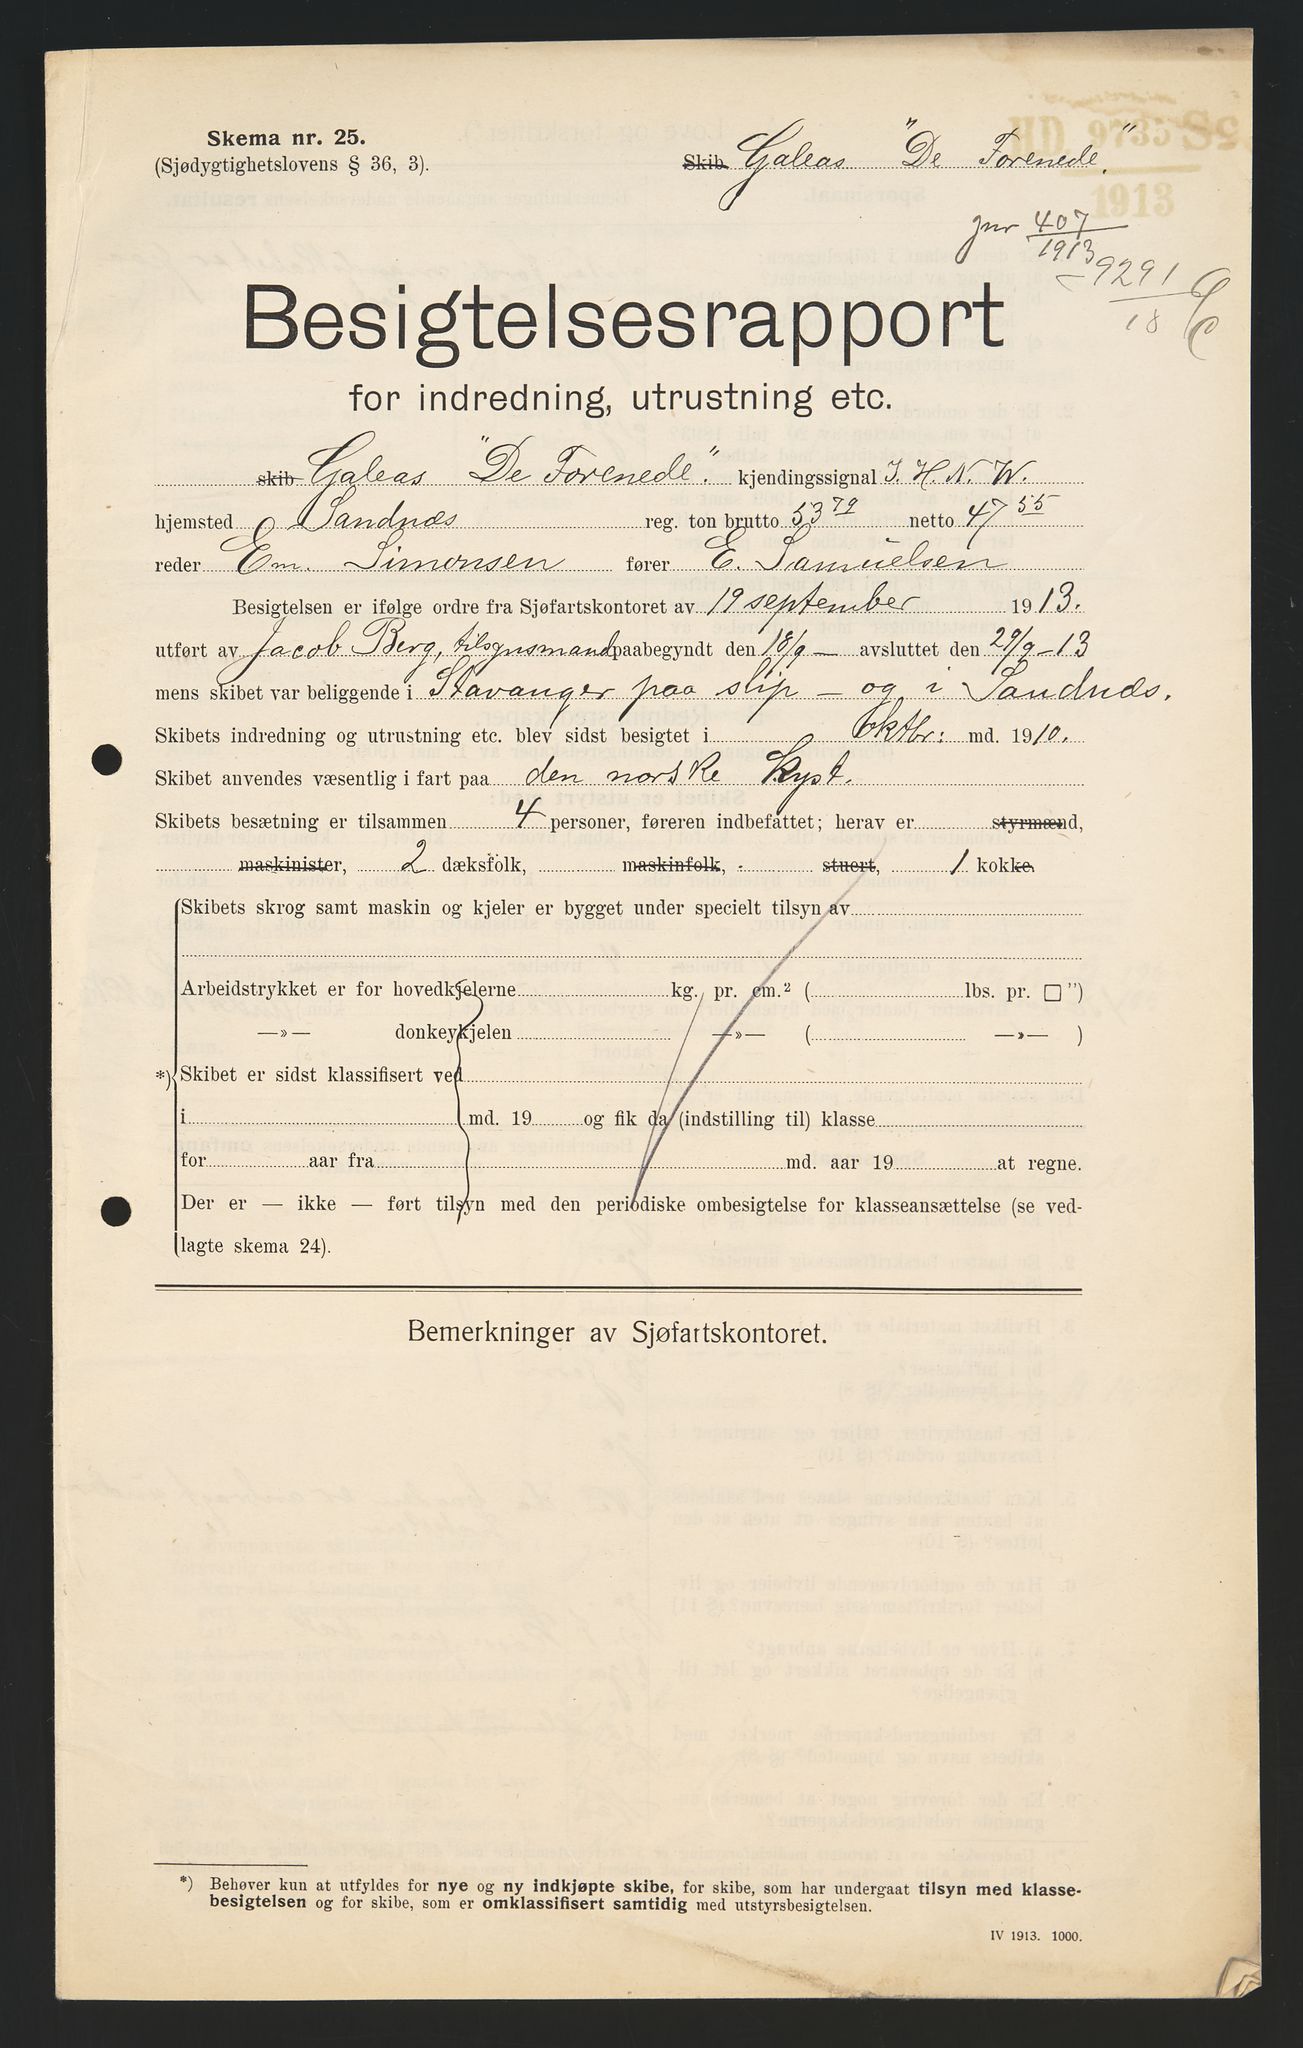 Skema nr. 25.
(Sjødygtighetslovens § 36, 3).
Skib Galeas "De Forenede".
HD 9735 Sc
1913
jnr 407/1913
9291/18
Besigtelsesrapport
for indredning, utrustning etc.
skib Galeas "De Forenede". kjendingssignal J. H. N. W.
hjemsted Sandnæs reg. ton brutto 53 79 netto 47 55
reder Em. Simonsen fører E. Samuelsen
Besigtelsen er ifølge ordre fra Sjøfartskontoret av 19 september 1913.
utført av Jacob Berg, tilsynsmand paabegyndt den 18/9 — avsluttet den 29/9-13
mens skibet var beliggende i Stavanger paa slip — og i Sandnæs.
Skibets indredning og utrustning etc. blev sidst besigtet i oktbr: md. 1910.
Skibet anvendes væsentlig i fart paa den norske Kyst.
Skibets besætning er tilsammen 4 personer, føreren indbefattet; herav er styrmænd,
maskinister, 2 dæksfolk, maskinfolk, stuert, 1 kokke
Skibets skrog samt maskin og kjeler er bygget under specielt tilsyn av
Arbeidstrykket er for hovedkjelerne kg. pr. cm.² ( lbs. pr. □")
—»— donkeykjelen —»— ( —»— )
*) Skibet er sidst klassifisert ved
i md. 19 og fik da (indstilling til) klasse
for aar fra md. aar 19 at regne.
Der er — ikke — ført tilsyn med den periodiske ombesigtelse for klasseansættelse (se ved-
lagte skema 24).
Bemerkninger av Sjøfartskontoret.
*) Behøver kun at utfyldes for nye og ny indkjøpte skibe, for skibe, som har undergaat tilsyn med klasse-
besigtelsen og for skibe, som er omklassifisert samtidig med utstyrsbesigtelsen.
IV 1913. 1000.